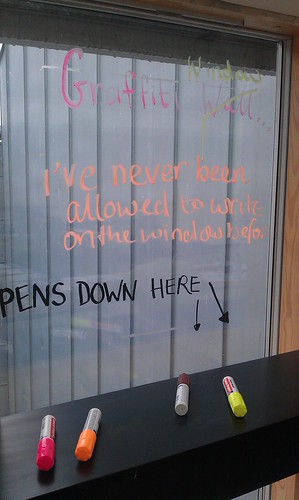 Window
Graffiti Wall...
I've never been
allowed to write
on the window befor
PENS DOWN HERE